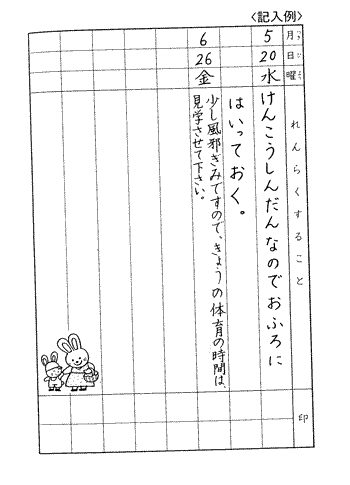 〈記入例〉
月 日 曜 れんらくすること 印
5 20 水 けんこうしんだんなのでおふろに
はいっておく。
6 26 金 少し風邪ぎみですので、きょうの体育の時間は、
見学させて下さい。